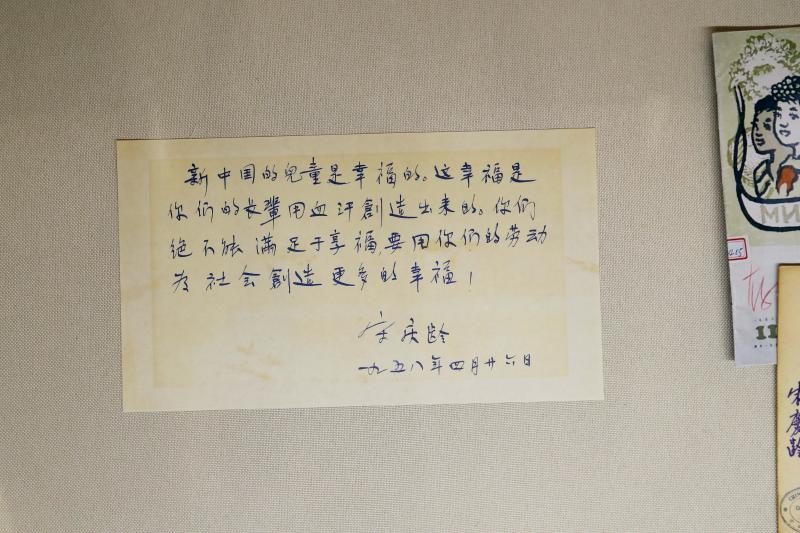 新中国的兒童是幸福的。这幸福是
你们的长輩用血汗創造出来的。你们
绝不能满足于享福,要用你们的劳动
为社会創造更多的幸福！
宋庆龄
一九五八年四月廿六日
МИ
11
宋慶齡